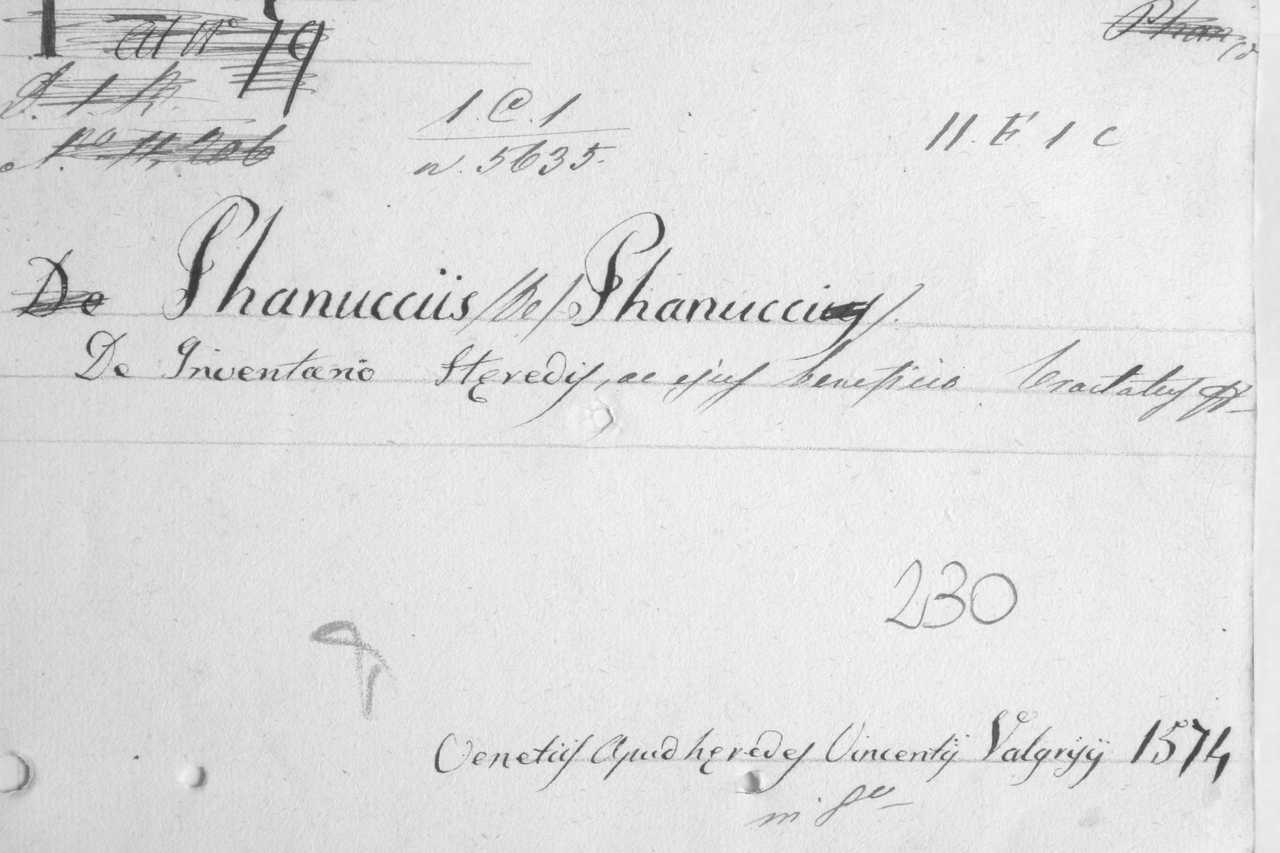 At N° 79
Phan
N° 11,206
1. C. 1
n. 5635.
11. E 1 C
De Phanucciis /De/ Phanucci/.
De Inventario Heredis, ac ejus beneficio Tractatus
230
Venetiis Apud heredes Vincentij Valgrisij 1574
in 8°